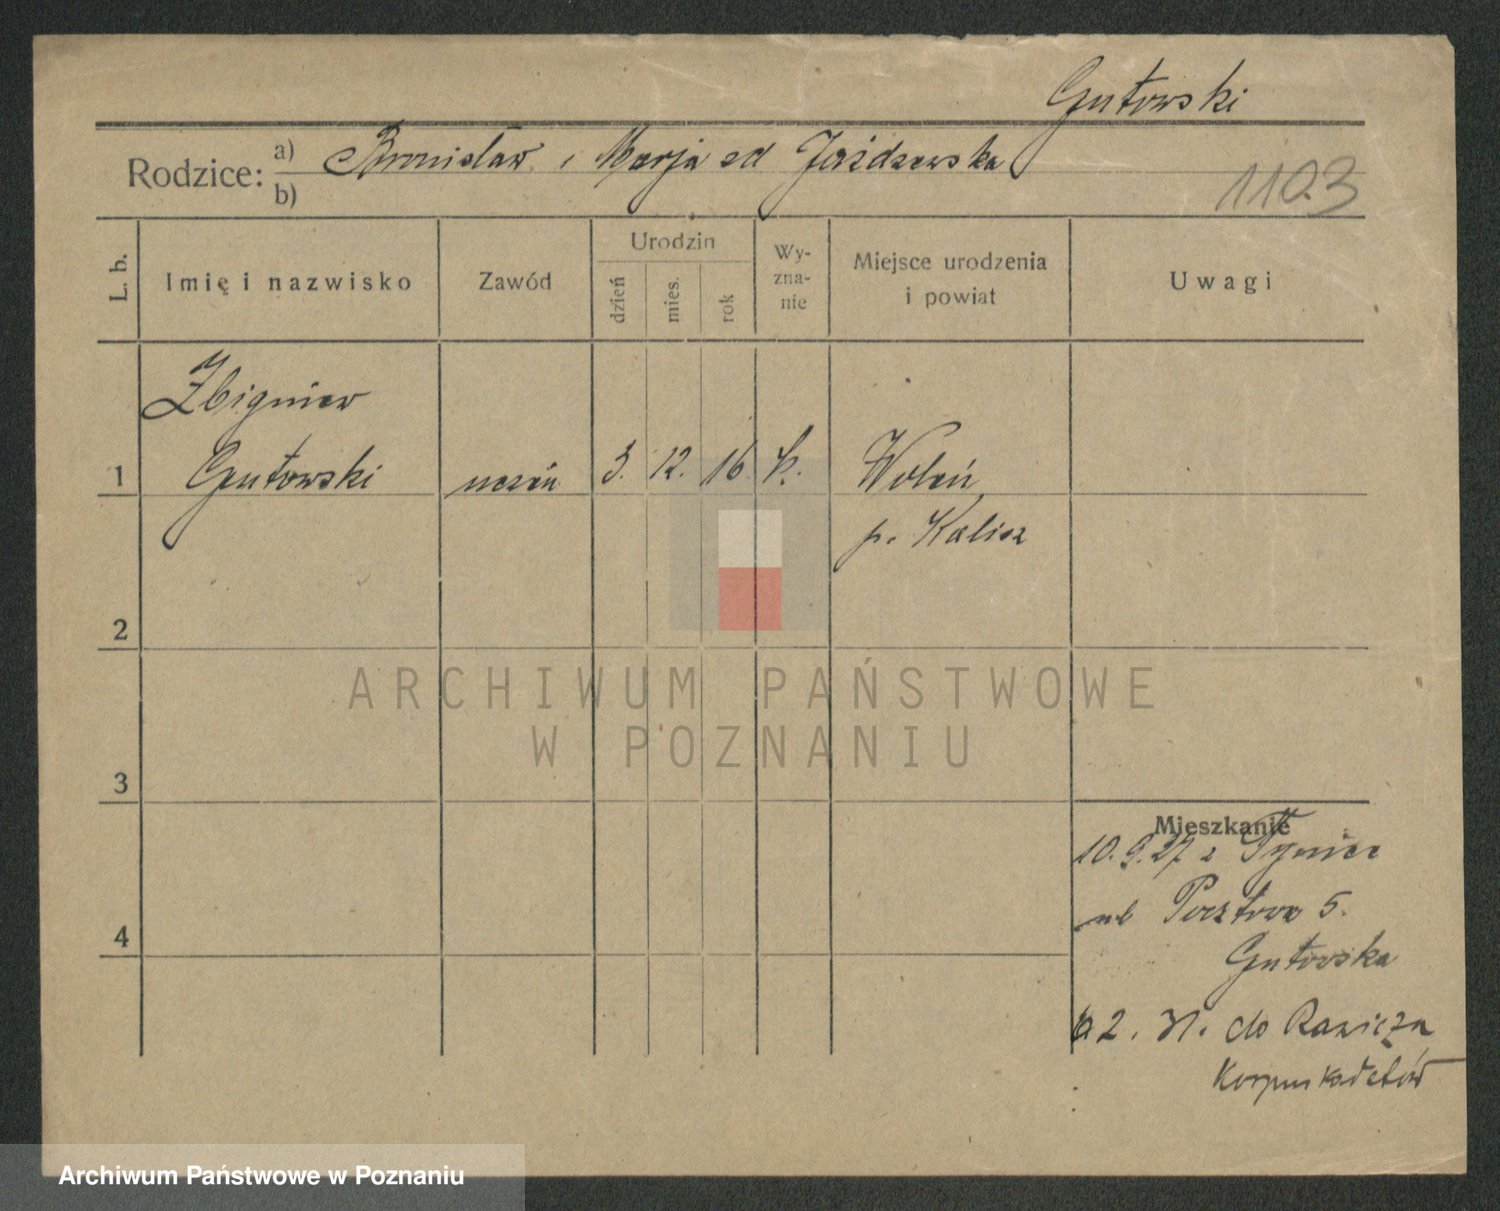 Gutowski
Rodzice: a) Bronisław i Marja zd Jaźdzewska
b)
1103
L. b.
Imię i nazwisko
Zawód
Urodzin
dzień
mies.
rok
Wy-
zna-
nie
Miejsce urodzenia
i powiat
Uwagi
Zbigniew
1 Gutowski uczeń 3. 12. 16 k. Woleń
p. Kalisz
2
3
4
Mieszkanie
10. 9. 27 z Tyniec
ul Pocztowa 5.
Gutowska
2. 31. do Rawicza
Korpus kadetów
ARCHIWUM PAŃSTWOWE
W POZNANIU
Archiwum Państwowe w Poznaniu